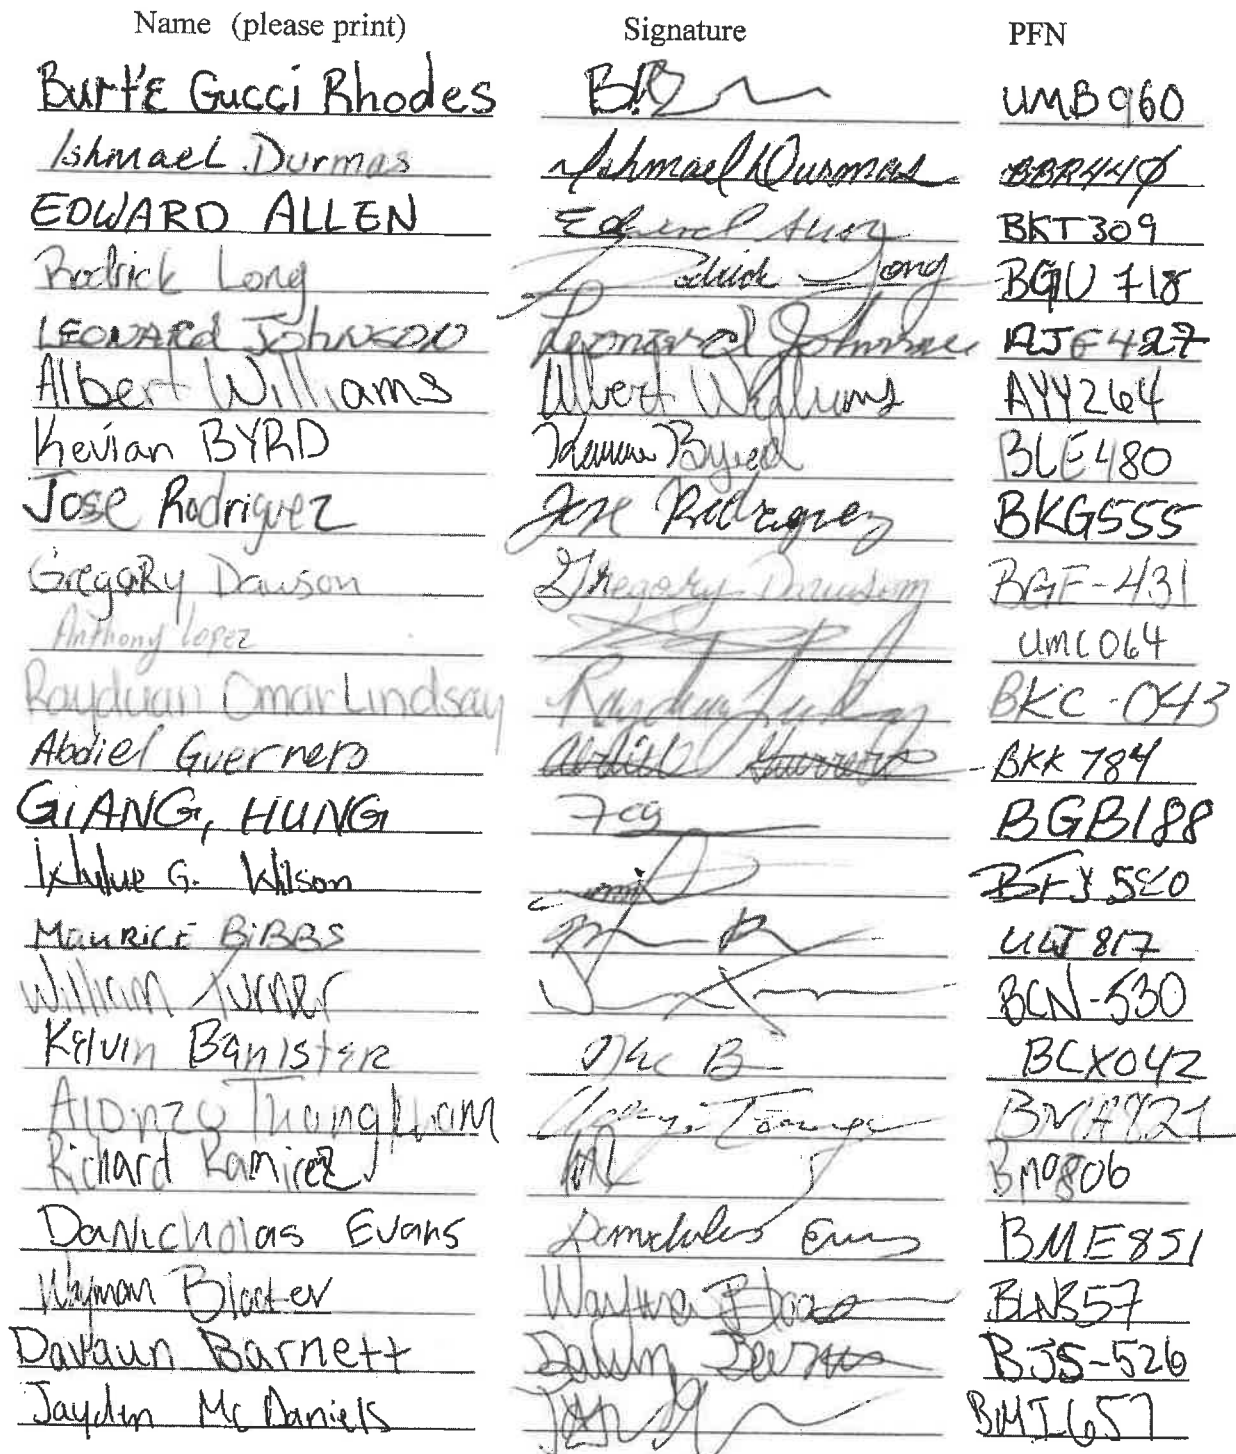 Name (please print) Signature PFN
Burt'E Gucci Rhodes UMB960
Ishmael Durmas Ishmael Durmas BBR440
EDWARD ALLEN Edward Allen BKT309
Rodrick Long Rodrick Long BGU 718
LEONARD JOHNSON Leonard Johnson 427
Albert Williams Albert Williams AYY264
Kevian BYRD Byrd BLE480
Jose Rodriguez Jose Rodriguez BKG555
GregaRy Dawson Gregory Dawson BGF-431
Anthony Lopez UMC064
Rayduan Omar Lindsay Rayduan Lindsay BKC-043
Abdiel Guerrero Abdiel Guerrero BKK 784
GIANG, HUNG BGB188
G. Wilson
MAURICE BiBBS 817
William Turner BCN-530
Kelvin Banister BCX042
Alonzo Thongkham BMA821
Richard Ramirez BMO806
DaNicholas Evans Danicholas Evans BME851
Wayman BLN357
Davaun Barnett BJS-526
Jayden McDaniels BMI657